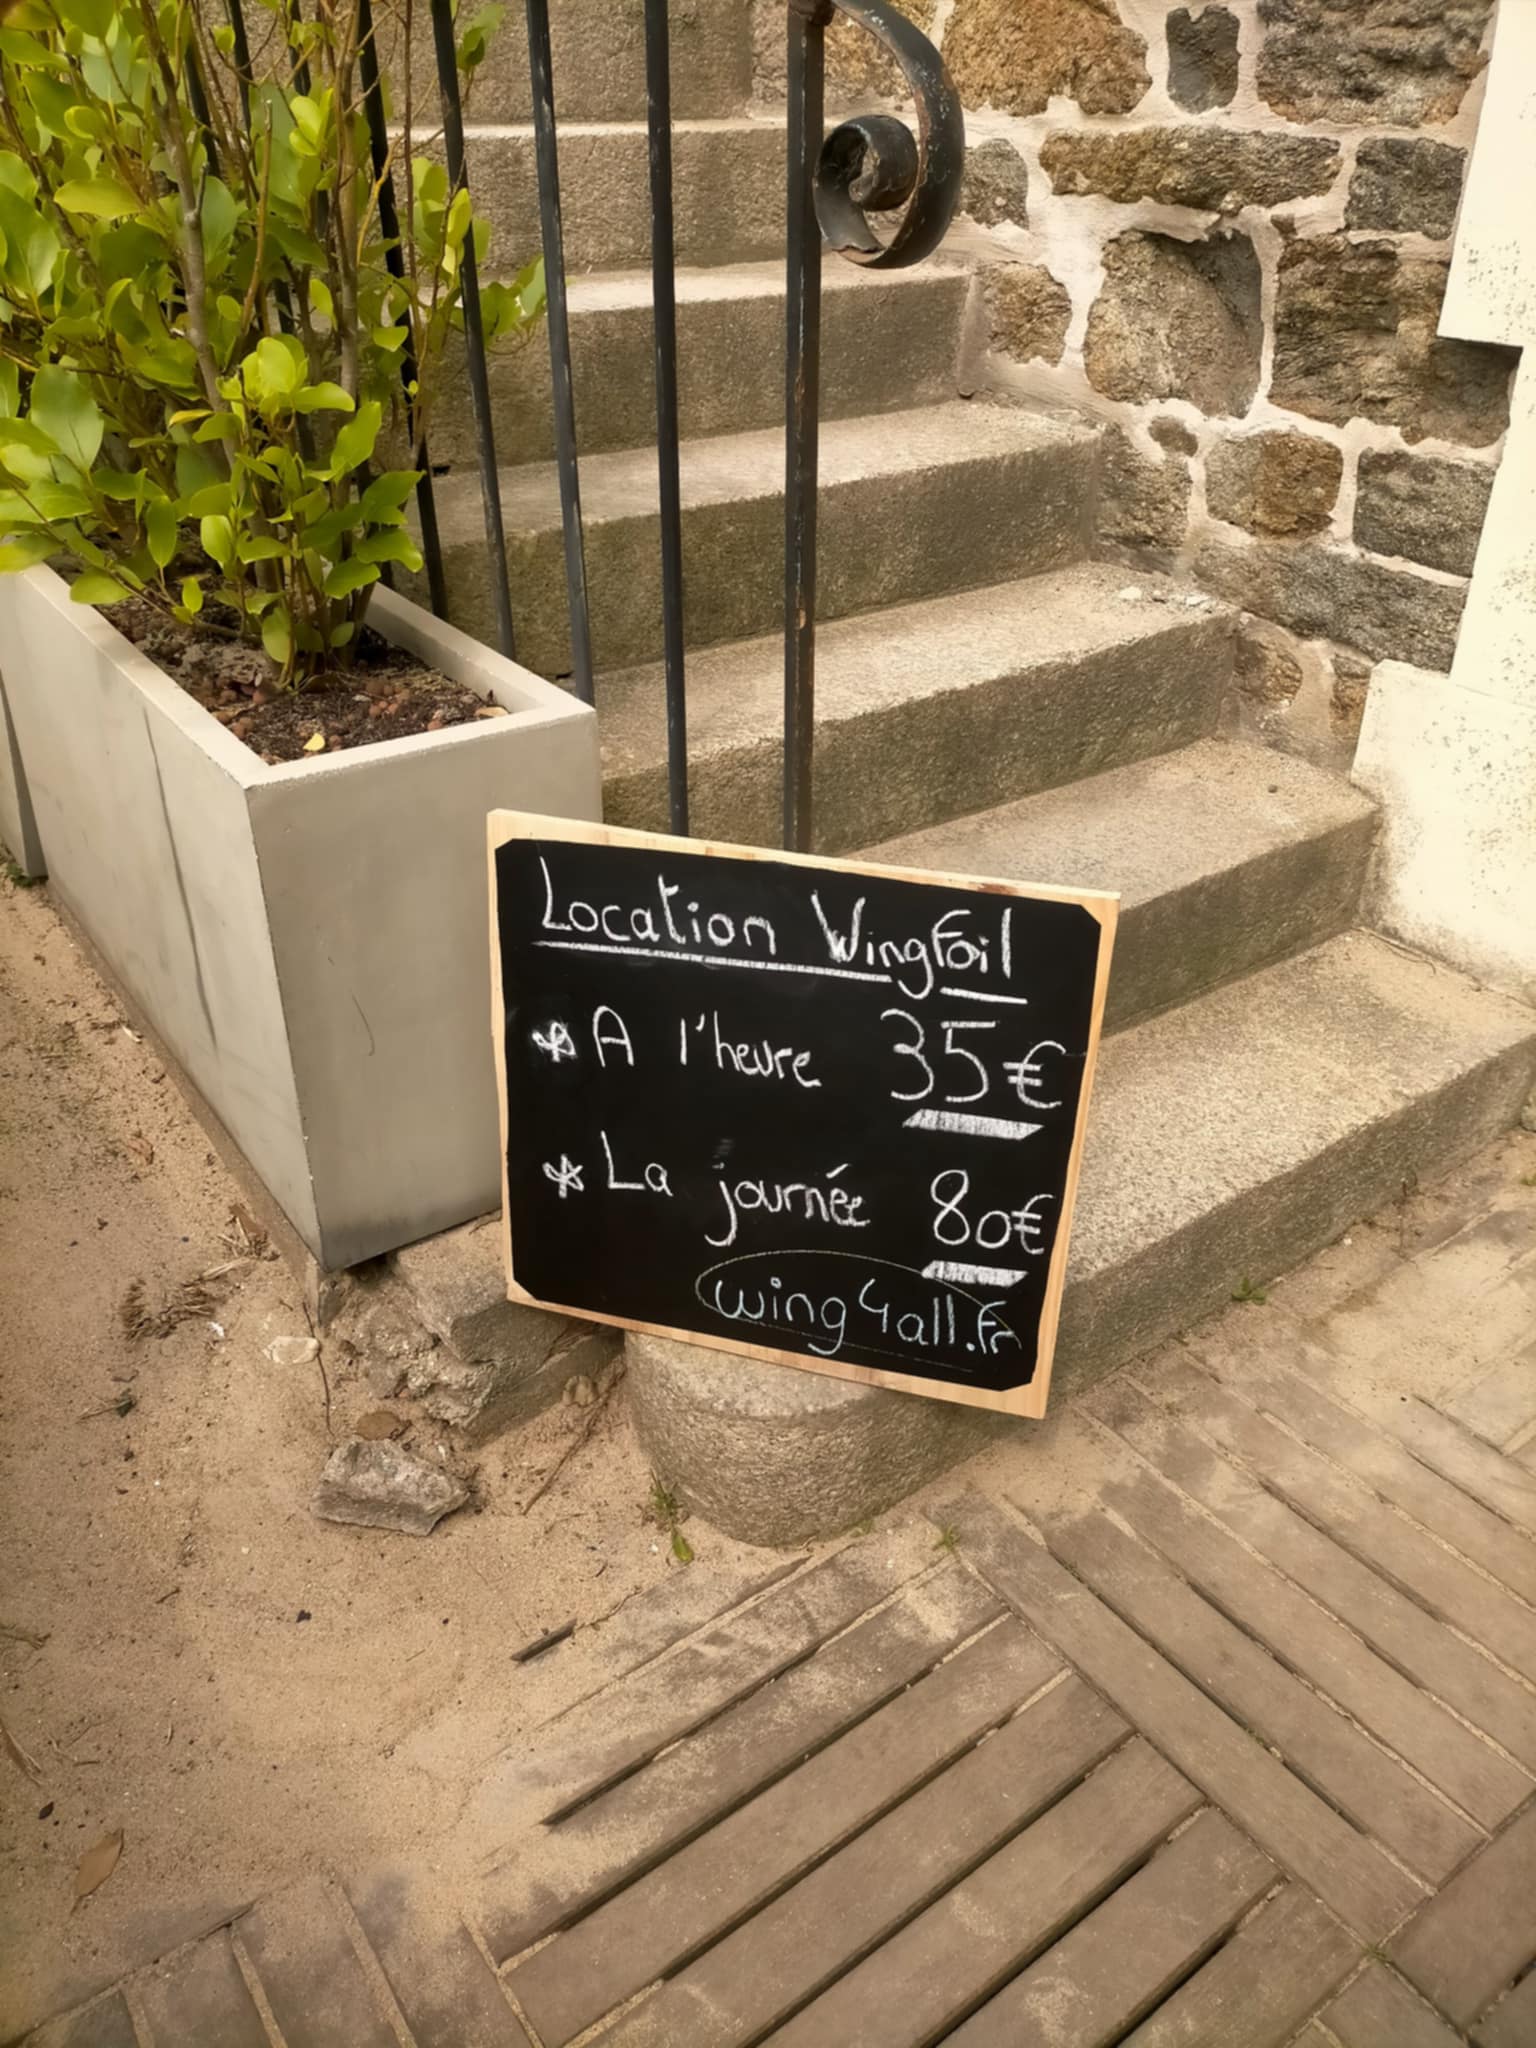 Location WingFoil
* A l'heure 35€
* La journée 80€
wing4all.fr